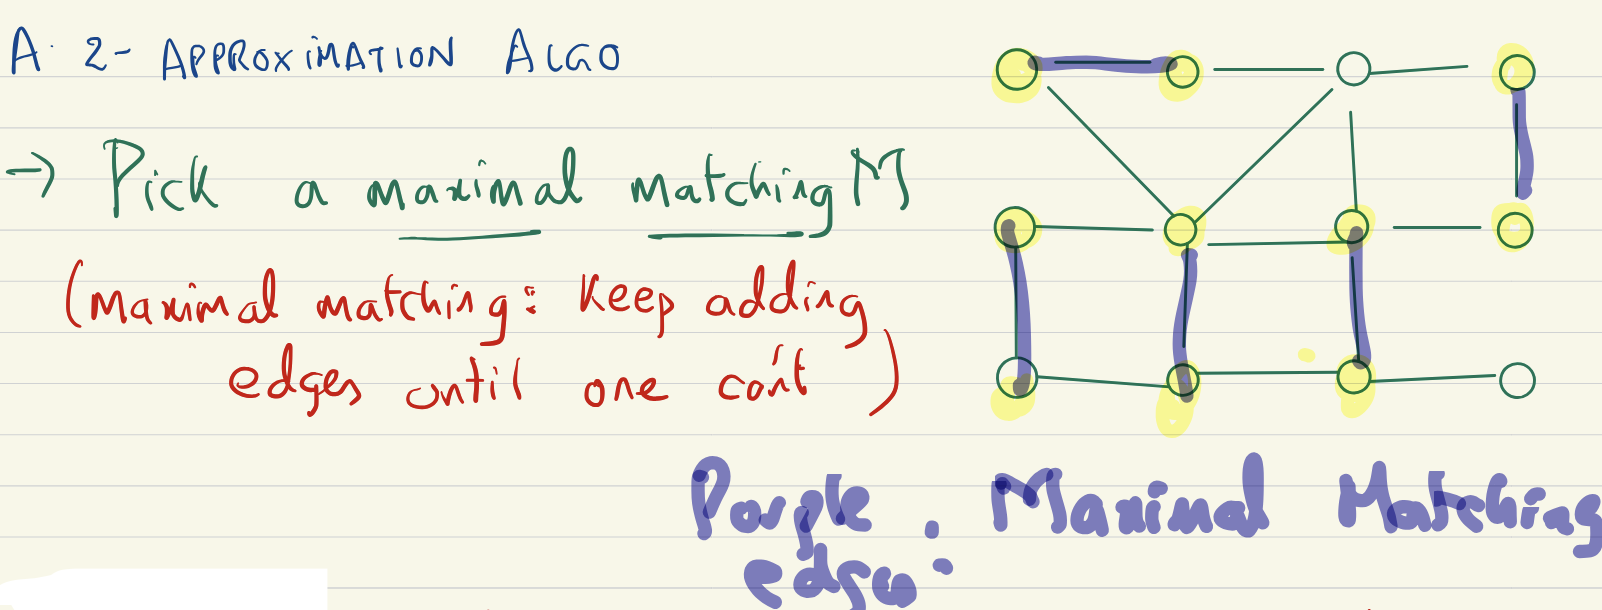 A 2-APPROXIMATION ALGO
→ Pick a maximal matching M
(Maximal matching: Keep adding
edges until one can't)
Purple : Maximal Matching
edges: